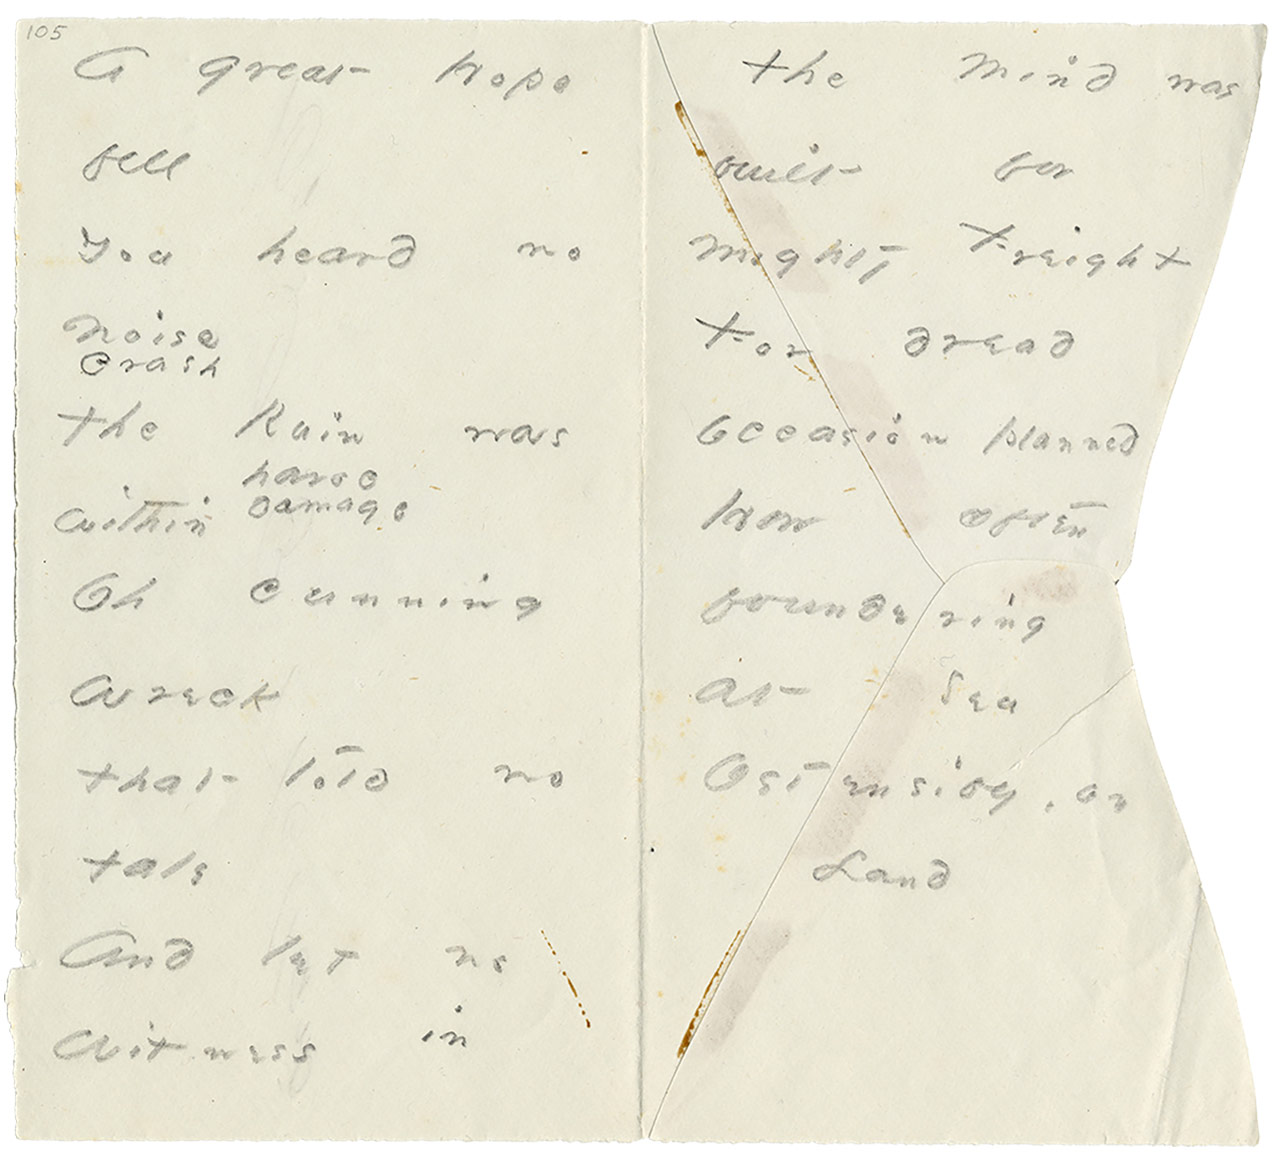 105
A great Hope
fell
You heard no
noise
Crash
The Ruin was
havoc
within damage
Oh Cunning
Wreck
that told no
tale
And let no
Witness in
The mind was
built for
mighty Freight
For dread
Occasion planned
How often
foundering
at Sea
Ostensibly, on
Land